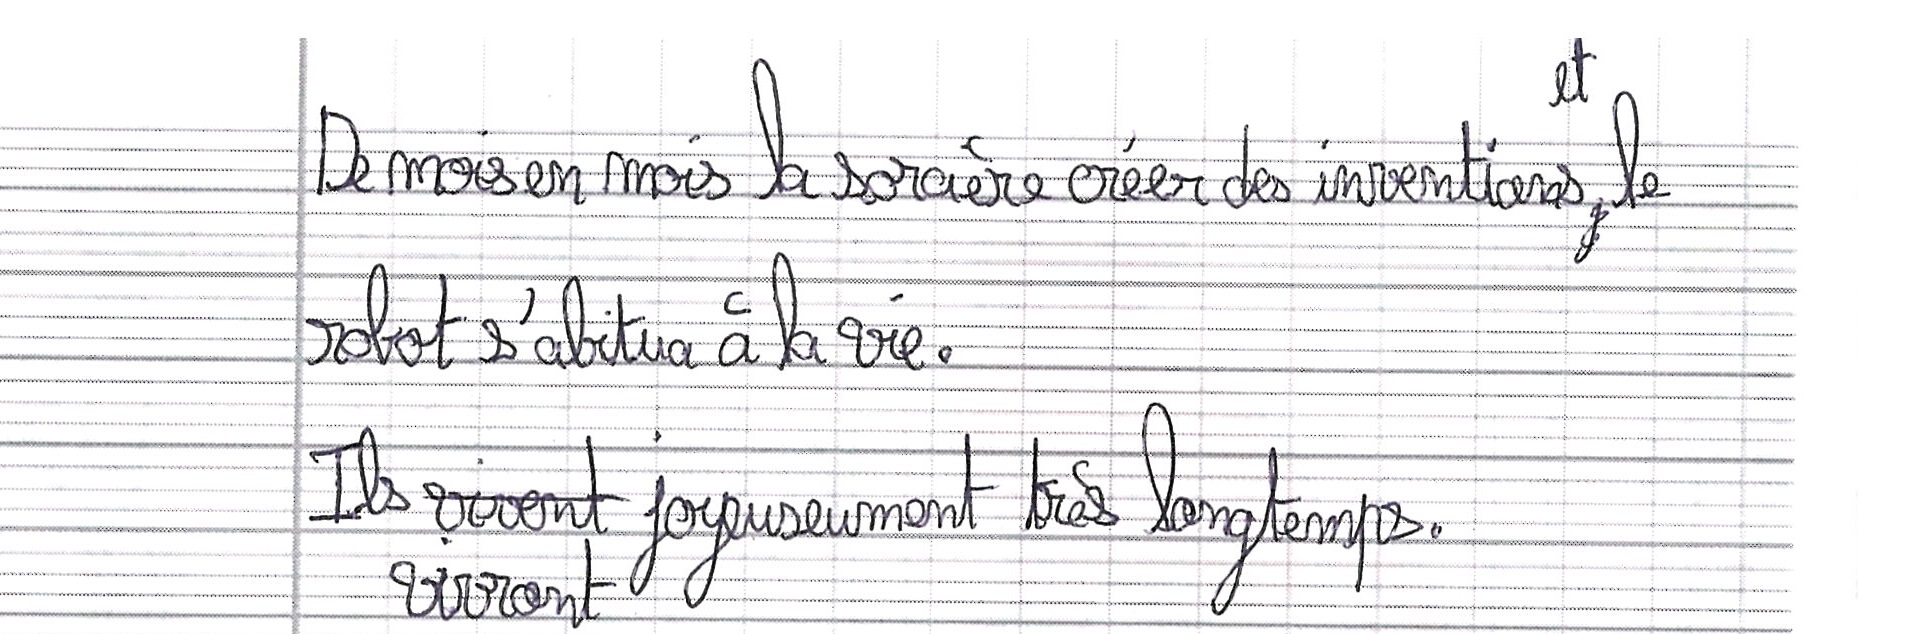 et
De mois en mois la sorcière créer des inventions, le
robot s'abitua à la vie.
Ils vivent joyeuseument très longtemps.
vivront